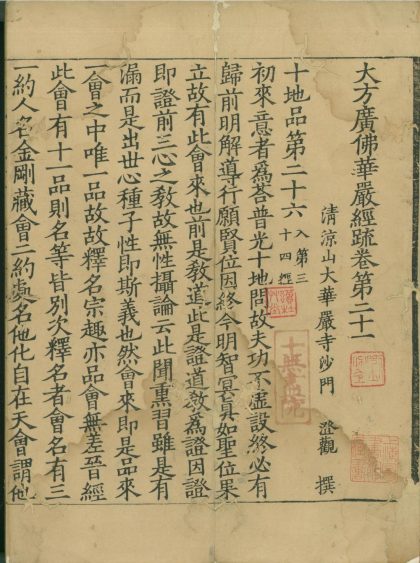 大方廣佛華嚴經疏卷第二十一
清涼山大華嚴寺沙門 澄觀 撰
十地品第二十六 入第三十四經
初來意者爲荅普光十地問故夫功不虛設終必有
歸前明解導行願賢位因終今明智冥真如聖位果
立故有此會來也前是敎道此是證道敎爲證因證
即證前三心之敎故無性攝論云此聞熏習雖是有
漏而是出世心種子性即斯義也然會來即是品來
一會之中唯一品故故釋名宗趣亦品會無差晉經
此會有十一品則名等皆別次釋名者會名有三
一約人名金剛藏會二約處名他化自在天會謂他